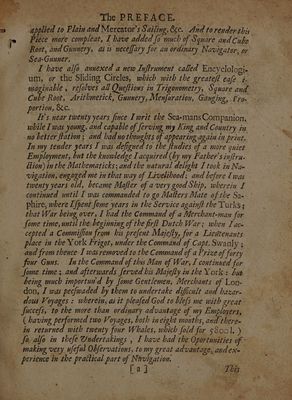 The PREFACE.
applied to Plain and Mercator's Sailing, &c. And to render this
Piece more compleat, I have added so much of Square and Cube
Root, and Gunnery, as is necessary for an ordinary Navigator, or
Sea-Gunner.
I have also annexed a new Instrument called Encyclologi-
um, or the Sliding Circles, which with the greatest ease i-
maginable, resolves all Questions in Trigonometry, Square and
Cube Root, Arithmetick, Gunnery, Mensuration, Gauging, Pro-
portion, &c.
It's near twenty years since I writ the Sea-mans Companion,
while I was young, and capable of serving my King and Country in
no better station; and had no thoughts of appearing again in print.
In my tender years I was designed to the studies of a more quiet
Employment, but the knowledge I acquired (by my Father's instru-
ction) in the Mathematicks; and the natural delight I took in Na-
vigation, engaged me in that way of Livelihood: and before I was
twenty years old, became Master of a very good Ship, wherein I
continued until I was commanded to go Masters Mate of the Sa-
phire, where I spent some years in the Service against the Turks;
that War being over, I had the Command of a Merchant-man for
some time, until the beginning of the first Dutch War; when I ac-
cepted a Commission from his present Majesty, for a Lieutenants
place in the York Frigot, under the Command of Capt. Swanly;
and from thence I was removed to the Command of a Prize of forty
four Guns. In the Command of this Man of War, I continued for
some time; and afterwards served his Majesty in the York: but
being much importun'd by some Gentlemen, Merchants of Lon-
don, I was perswaded by them to undertake difficult and hazar-
dous Voyages: wherein, as it pleased God to bless me with great
success, to the more than ordinary advantage of my Employers,
(having performed two Voyages, both in eight months, and there-
in returned with twenty four Whales, which sold for 5800 l.)
so also in these Undertakings, I have had the Oportunities of
making very useful Observations, to my great advantage, and ex-
perience in the practical part of Navigation.
[a] This